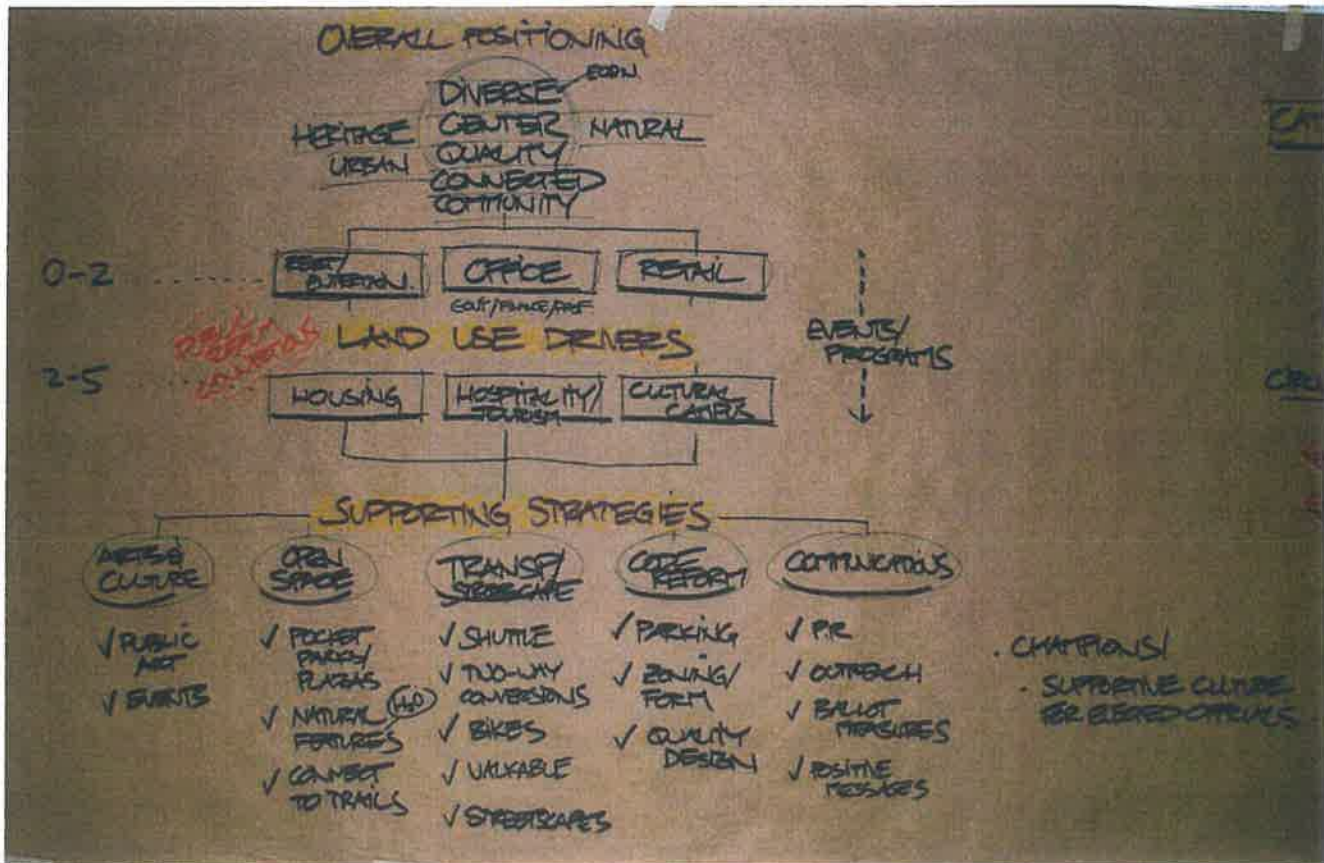 OVERALL POSITIONING
ECON.
DIVERSE
HERITAGE CENTER NATURAL
URBAN QUALITY
CONNECTED
COMMUNITY
0-2
ENTERTAIN.
OFFICE
RETAIL
GOVT/FINANCE/PROF
LAND USE DRIVERS
EVENTS/
PROGRAMS
2-5
HOUSING
HOSPITALITY/
TOURISM
CULTURAL
CAMPUS
SUPPORTING STRATEGIES
ARTS &
CULTURE
✓ PUBLIC
ART
✓ EVENTS
OPEN
SPACE
✓ POCKET
PARKS/
PLAZAS
✓ NATURAL H2O
FEATURES
✓ CONNECT
TO TRAILS
TRANSP/
STREETSCAPE
✓ SHUTTLE
✓ TWO-WAY
CONVERSIONS
✓ BIKES
✓ WALKABLE
✓ STREETSCAPES
CODE
REFORM
✓ PARKING
✓ ZONING/
FORM
✓ QUALITY
DESIGN
COMMUNICATIONS
✓ P.R.
✓ OUTREACH
✓ BALLOT
MEASURES
✓ POSITIVE
MESSAGES
· CHAMPIONS/
· SUPPORTIVE CULTURE
FOR ELECTED OFFICIALS